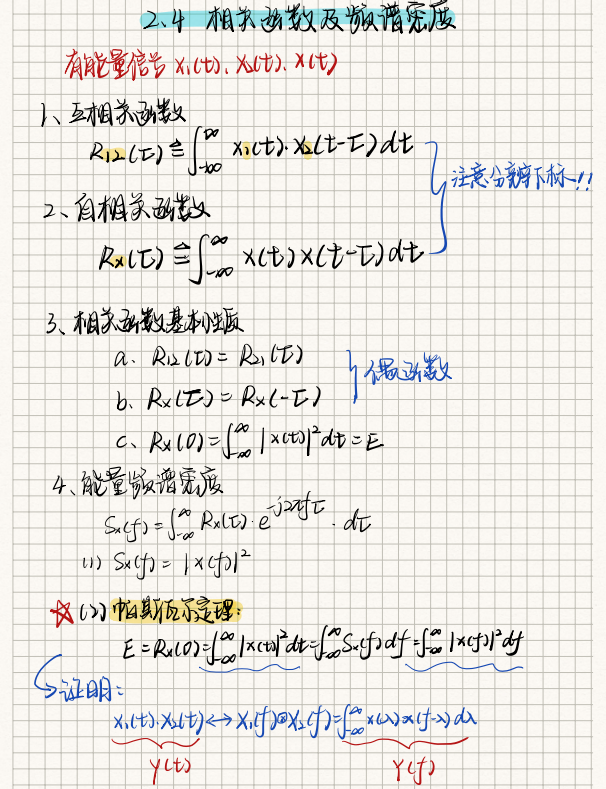 2.4 相关函数及频谱密度
有能量信号 x₁(t)、x₂(t)、x(t)
1、互相关函数
R₁₂(τ) ≙ ∫_{-∞}^{∞} x₁(t)·x₂(t-τ) dt
注意分辨下标!!
2、自相关函数
Rₓ(τ) ≙ ∫_{-∞}^{∞} x(t) x(t-τ) dt
3、相关函数基本性质
a. R₁₂(τ) = R₂₁(τ)
偶函数
b. Rₓ(τ) = Rₓ(-τ)
c. Rₓ(0) = ∫_{-∞}^{∞} |x(t)|² dt = E
4、能量频谱密度
Sₓ(f) = ∫_{-∞}^{∞} Rₓ(τ)·e^{-j2πfτ}·dτ
(1) Sₓ(f) = |x(f)|²
☆(2) 帕斯伐尔定理:
E = Rₓ(0) = ∫_{-∞}^{∞} |x(t)|² dt = ∫_{-∞}^{∞} Sₓ(f) df = ∫_{-∞}^{∞} |x(f)|² df
证明:
x₁(t)·x₂(t) ↔ X₁(f)⊗X₂(f) = ∫_{-∞}^{∞} x(λ) x(f-λ) dλ
y(t) Y(f)